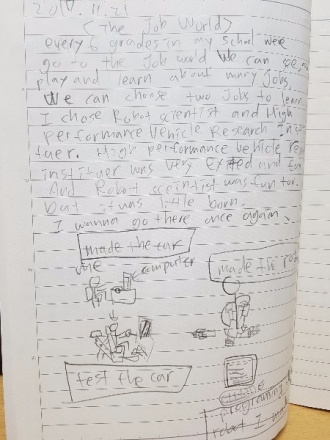 11. 21
<The Job World>
every 6 grades in my school were
go to the Job world we can see,
play and learn about many jobs.
We can choose two Jobs to learn
I chose Robot scientist and High
performance Vehicle Research Inst
tuer. High performance vehicle re
instituer was very exited and
And Robot scientist was fun too.
but it was little born.
I wanna go there once again.
made the car
computer
made the
test the car
programming
robot I